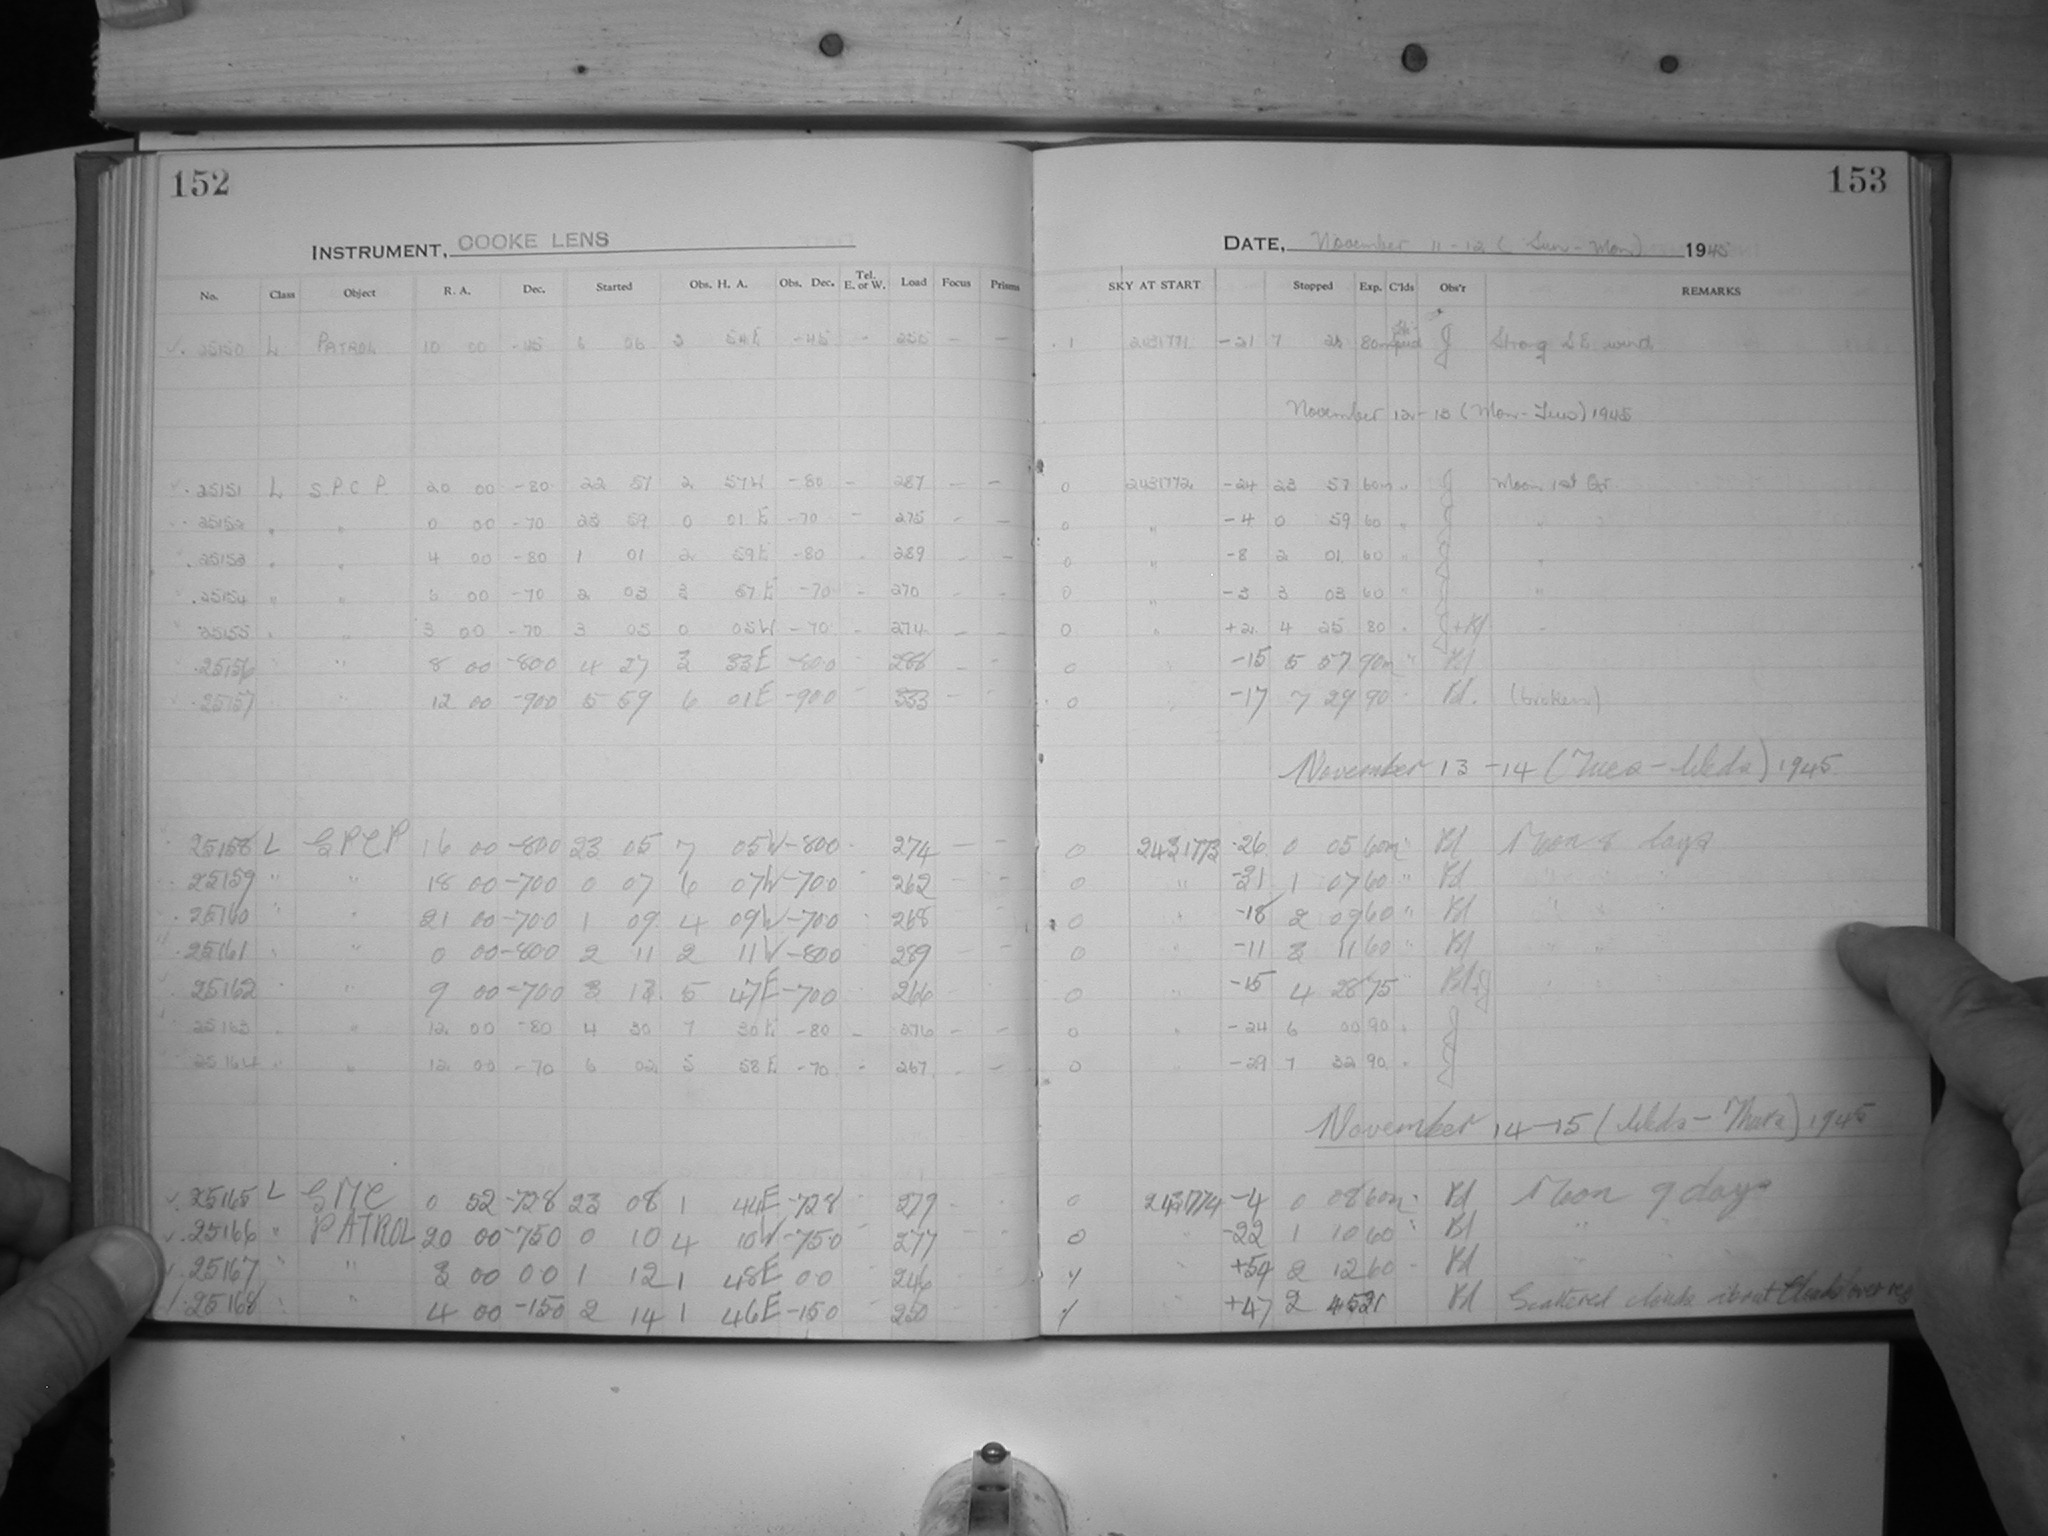 152
INSTRUMENT, COOKE LENS
No. Class Object R. A. Dec. Started Obs. H. A. Obs. Dec. Tel. E. or W. Load Focus Prisms
25150 L PATROL 10 00 -45 6 06 3 54E -45 - 255 - -
25151 L S.P.C P. 20 00 -80 22 57 2 57W -80 - 287 - -
25152 " " 0 00 -70 23 59 0 01E -70 - 275 - -
25153 " " 4 00 -80 1 01 2 59E -80 - 289 - -
25154 " " 6 00 -70 2 03 3 57E -70 - 270 - -
25155 " " 3 00 -70 3 05 0 05W -70 - 274 - -
25156 " 8 00 -800 4 27 3 33E -800 288 - -
25157 " 12 00 -900 5 59 6 01E -900 - 333 - -
25158 L SPCP 16 00 -800 23 05 7 05W -800 274 - -
25159 " " 18 00 -700 0 07 6 07W -700 262
25160 " " 21 00 -700 1 09 4 09W -700 268
25161 " " 0 00 -800 2 11 2 11W -800 289
25162 " " 9 00 -700 3 13 5 47E -700 266
25163 " " 12 00 -80 4 30 7 30E -80 - 276 - -
25164 " " 12 00 -70 6 02 5 58E -70 - 267 - -
25165 L SMC 0 52 -728 23 08 1 44E -728 279
25166 " PATROL 20 00 -750 0 10 4 10W -750 277
25167 " " 3 00 00 1 12 1 48E 00 246
25168 " " 4 00 -150 2 14 1 46E -150 250
153
DATE, November 11-12 (Sun-Mon) 1945
SKY AT START Stopped Exp. C'lds Obs'r REMARKS
1 2431771 -21 7 26 80m J Strong S E wind
November 12-13 (Mon-Tues) 1945
0 2431772 -24 23 57 60m " J Moon 1st Qr.
0 " -4 0 59 60 " J "
0 " -8 2 01 60 " J "
0 " -3 3 03 60 " J "
0 " +2 4 25 80 " J+Bl "
0 -15 5 57 90m " Bl
0 -17 7 29 90 Bl. (broken)
November 13-14 (Tues-Weds) 1945
0 2431773 -26 0 05 60m " Bl Moon 8 days
0 " -21 1 07 60 " Bl
0 " -18 2 09 60 " Bl
0 " -11 3 11 60 " Bl
0 " -15 4 28 75 " Bl+J
0 " -24 6 00 90 " J
0 " -29 7 32 90 " J
November 14-15 (Weds-Thurs) 1945
0 2431774 -4 0 08 60m " Bl Moon 9 days
0 " -22 1 10 60 " Bl
+54 2 12 60 Bl
+47 2 45 Bl Scattered clouds about Clouds over reg